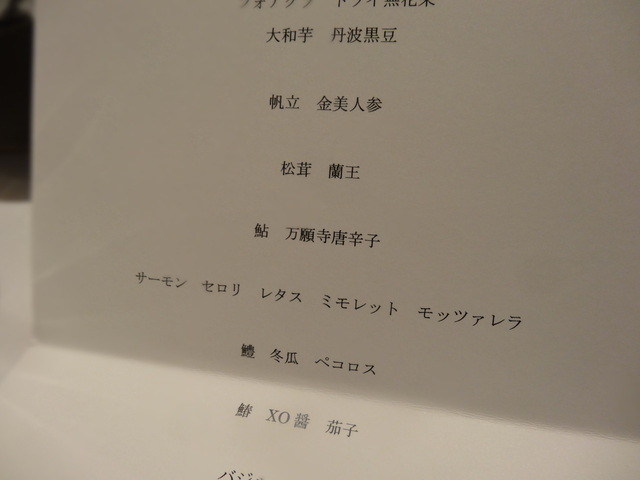 フォアグラ　ドライ無花果
大和芋　丹波黒豆
帆立　金美人参
松茸　蘭王
鮎　万願寺唐辛子
サーモン　セロリ　レタス　ミモレット　モッツァレラ
鱧　冬瓜　ペコロス
鰆　XO醤　茄子